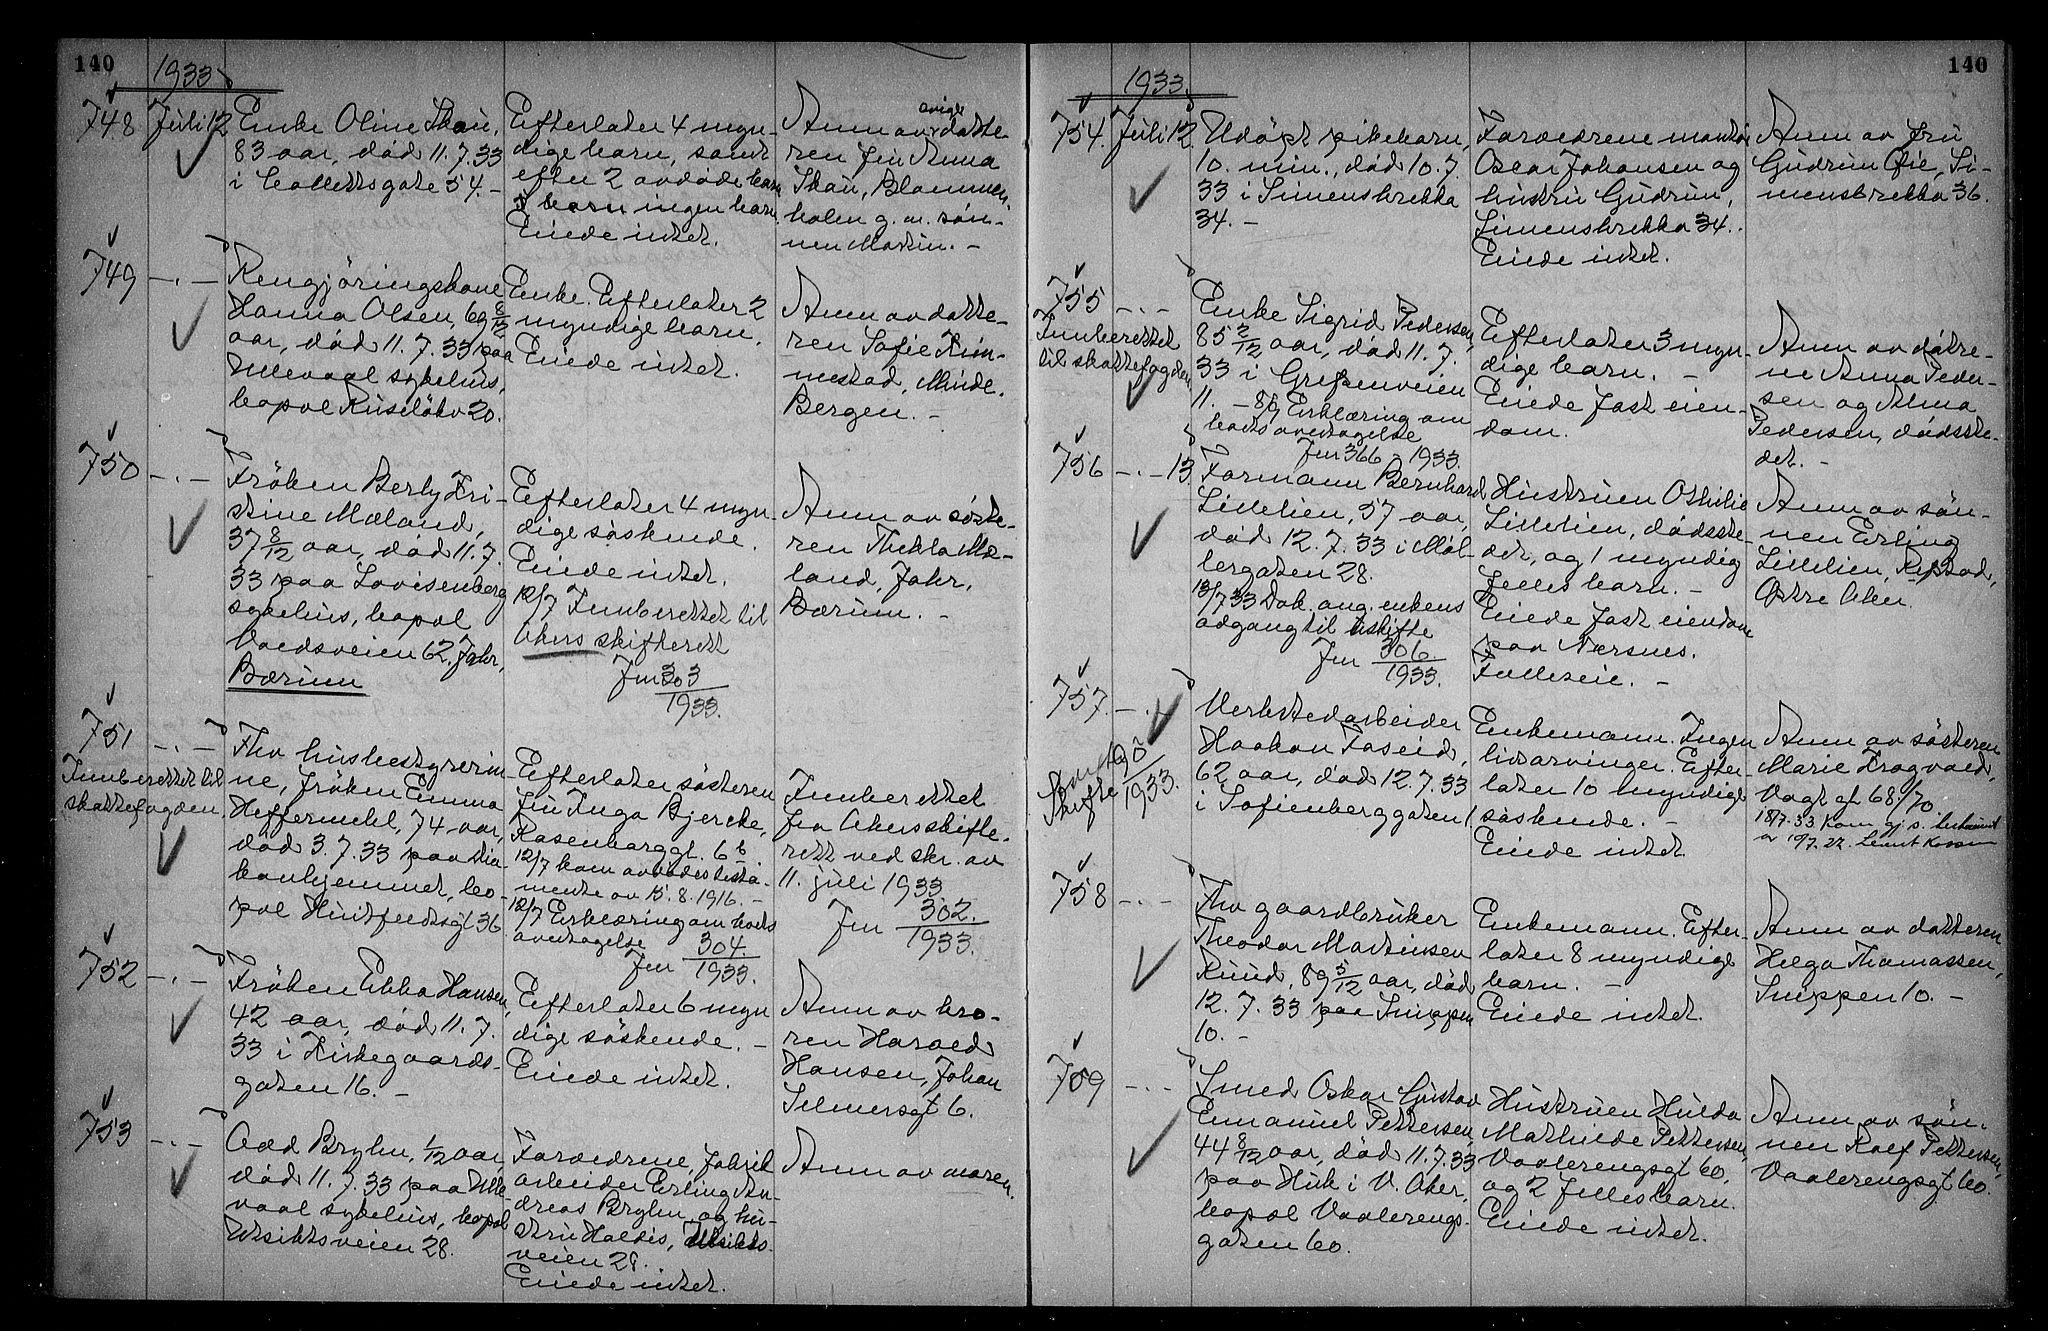 140
1933
748
Juli 12
Enke Oline Skau,
83 aar, död 11.7.33
i Colletts gate 54. -
Efterlater 4 myn-
dige barn, samt
efter 2 avdöde barn
barn ingen barn.
Eiede intet.
Anm av datte-
ren fru Anna
Skau, Blommen-
holm g. m. søn-
nen Martin. -
749
- . -
Rengjöringskone
Hanna Olsen, 69 8/12
aar, död 11.7.33 paa
Ullevaal sykehus,
bopæl Ruselökv 20.
Enke. Efterlater 2
myndige barn.
Eiede intet.
Anm av datte-
ren Sofie
Minde.
Bergen. -
750
- . -
Fröken Berly Kri-
stine Mæland,
37 8/12 aar, död 11.7.
33 paa Lovisenberg
sykehus, bopæl
62, Jahr,
Bærum
Efterlater 4 myn-
dige söskende.
Eiede intet.
12/7 Innberettet til
Akers skifterett
Jnr 303
1933.
Anm av söste-
ren Thekla Mæ-
land, Jahr,
Bærum. -
751
- . -
Innberettet til
skattefogden
Fhv husbestyrerin-
ne, fröken Emma
Heffermehl, 74 aar,
död 3.7.33 paa Dia-
konhjemmet, bo-
pæl Huitfeldtsgt 36
Efterlater søsteren
fru Inga Bjercke,
Rosenborggt. 6 b.
12/7 kom avdödes testa-
mente av 15.8.1916. -
12/7 Erklæring om boets
overtagelse
Jnr 304.
1933.
Innberettet
fra Akers skifte-
rett ved skr. av
11. juli 1933
Jnr 302.
1933.
752
- . -
Fröken Ebba Hansen,
42 aar, död 11.7.
33 i Kirkegaards-
gaten 16. -
Efterlater 6 myn
dige söskende. -
Eiede intet.
Anm av bro-
ren Harald
Hansen, Johan
Selmersgt 6.
753
- . -
Odd Bryhn, 1/12 aar,
död 11.7.33 paa Ulle-
vaal sykehus, bopæl
Utsiktsveien 28.
Forældrene, fabrik
arbeider Erling An-
dreas Bryhn og hu-
stru Haldis, Utsikts-
veien 28.
Eiede intet.
Anm av moren.
140
1933
754.
Juli 12.
Udöpt pikebarn,
10. min., död 10.7.
33 i Simensbrekka
34. -
Forældrene montör
Oscar Johansen og
hustru Gudrun,
Simensbrekka 34.
Eiede intet.
Anm av fru
Gudrun Øie, Si-
mensbrekka 36.
755
- . -
Innberettet
til skattefogden
Enke Sigrid Pedersen,
85 2/12 aar, död 11.7.
33 i Grefsenveien
11. - Erklæring om
boets overtagelse
Jnr 366 - 1933.
Efterlater 3 myn-
dige barn. -
Eiede fast eien-
dom.
Anm av døtre-
ne Anna Peder-
sen og Alma
Pedersen, dödsste-
det. -
756
- . - 13
Formann Bernhard
Lillelien, 57 aar,
död 12.7.33 i Möl-
lergaten 28.
13/7 33 Dok. ang. enkens
adgang til uskifte
Jnr 306.
1933.
Hustruen Othilie
Lillelien, dödsste-
det, og 1 myndig
felles barn. -
Eiede fast eiendom
paa Nærsnes.
Felleseie. -
Anm av søn-
nen Erling
Lillelien,
Østre Aker.
757.
- . -
Skifte
1933.
Verkstedarbeider
Haakon Foseid,
62 aar, död 12.7.33
i Sofienberggaten 1
Enkemann. Ingen
livsarvinger. Efter-
later 10 myndige
søskende. -
Eiede intet
Anm av søsteren
Marie Kragvold,
Vogts gt 68/70
758
- . -
Fhv gaardbruker
Theodor Martinsen
Ruud, 89 5/12 aar, död
12.7.33 paa Snippen
10. -
Enkemann. Efter-
later 8 myndige
barn. -
Eiede intet.
Anm av datteren
Helga Thomassen,
Snippen 10. -
759
- . -
Smed Oskar Gustav
Emanuel Pettersen,
44 8/12 aar, död 11.7.33
paa Huk i V. Aker,
bopæl Vaalerengs-
gaten 60.
Hustruen Hulda
Mathilde Pettersen,
Vaalerengsgt 60,
og 2 felles barn.
Eiede intet.
Anm av søn-
nen Rolf Pettersen,
Vaalerengsgt 60.